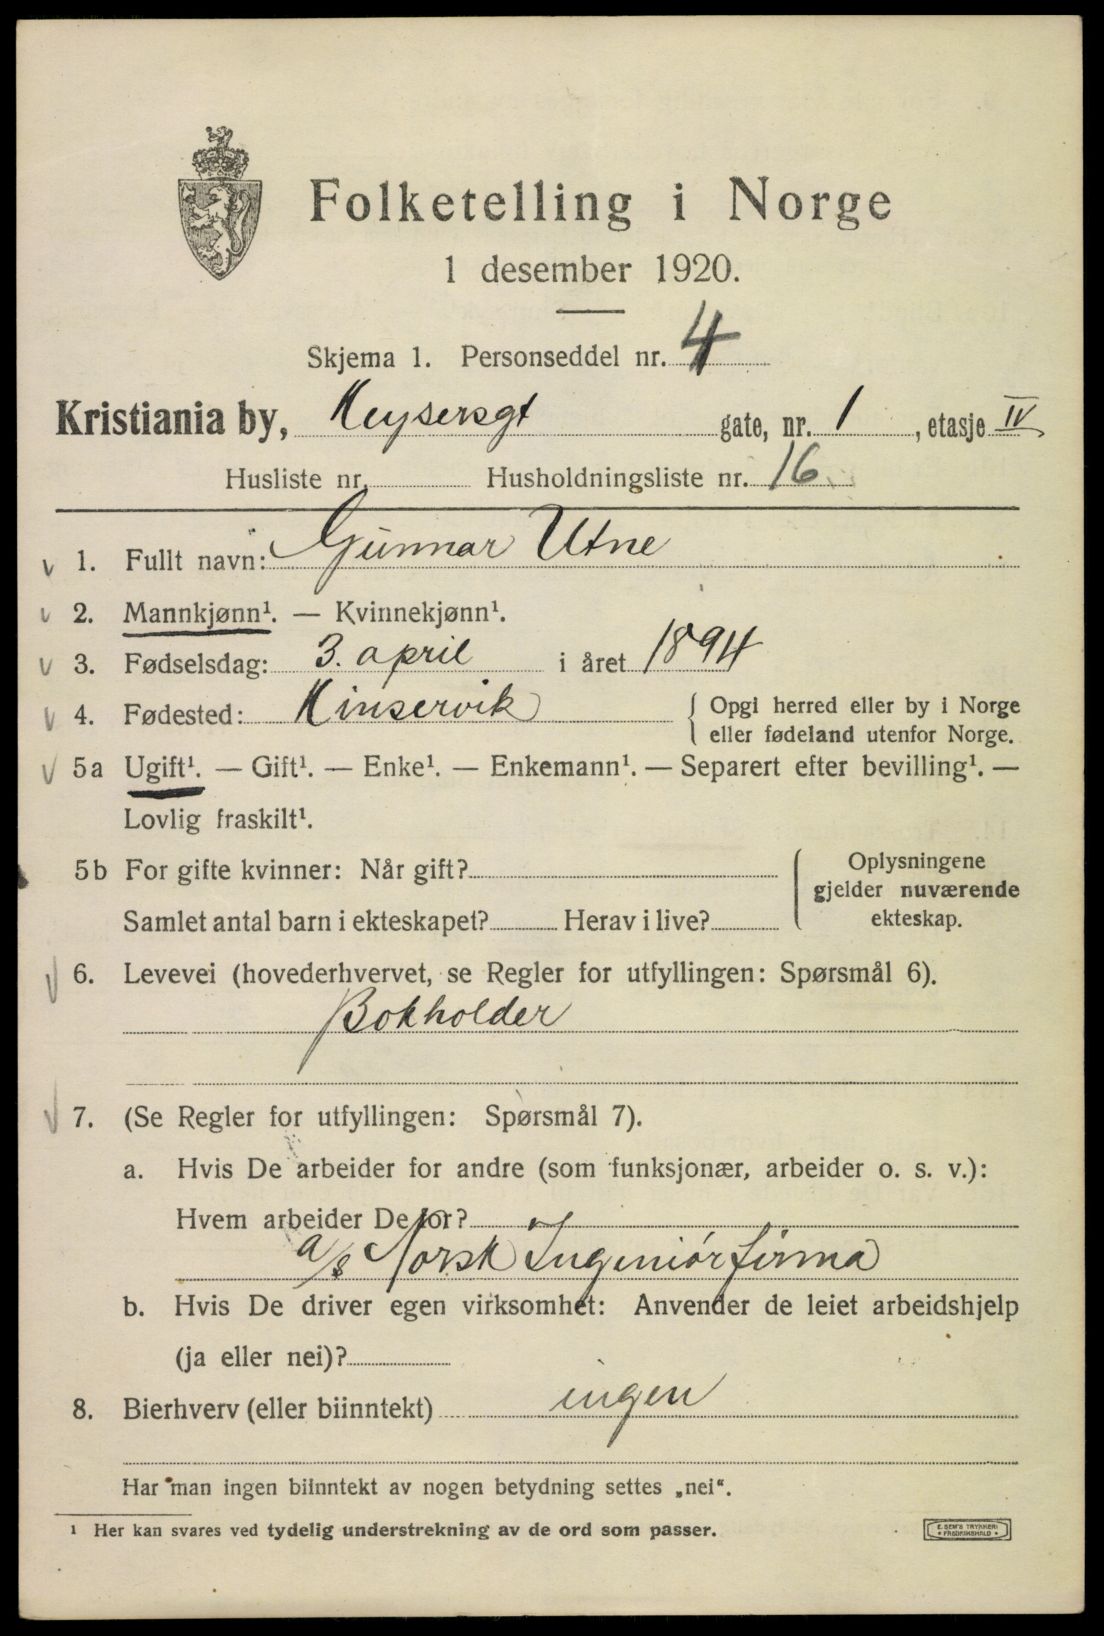 Folketelling i Norge
1 desember 1920.
Skjema 1. Personseddel nr. 4
Kristiania by, Keysersgt gate, nr. 1, etasje IV
Husliste nr. Husholdningsliste nr. 16
1. Fullt navn: Gunnar Utne
2. Mannkjønn¹. — Kvinnekjønn¹.
3. Fødselsdag: 3. april i året 1894
4. Fødested: Kinservik { Opgi herred eller by i Norge
eller fødeland utenfor Norge.
5a Ugift¹. — Gift¹. — Enke¹. — Enkemann¹. — Separert efter bevilling¹. —
Lovlig fraskilt¹.
5b For gifte kvinner: Når gift? { Oplysningene
gjelder nuværende
Samlet antal barn i ekteskapet? Herav i live? ekteskap.
6. Levevei (hovederhvervet, se Regler for utfyllingen: Spørsmål 6).
Bokholder
7. (Se Regler for utfyllingen: Spørsmål 7).
a. Hvis De arbeider for andre (som funksjonær, arbeider o. s. v.):
Hvem arbeider De for?
a/s Norsk Ingeniørfirma
b. Hvis De driver egen virksomhet: Anvender de leiet arbeidshjelp
(ja eller nei)?
8. Bierhverv (eller biinntekt) ingen
Har man ingen biinntekt av nogen betydning settes „nei“.
¹ Her kan svares ved tydelig understrekning av de ord som passer.
E. SEM'S TRYKKERI
FREDRIKSHALD